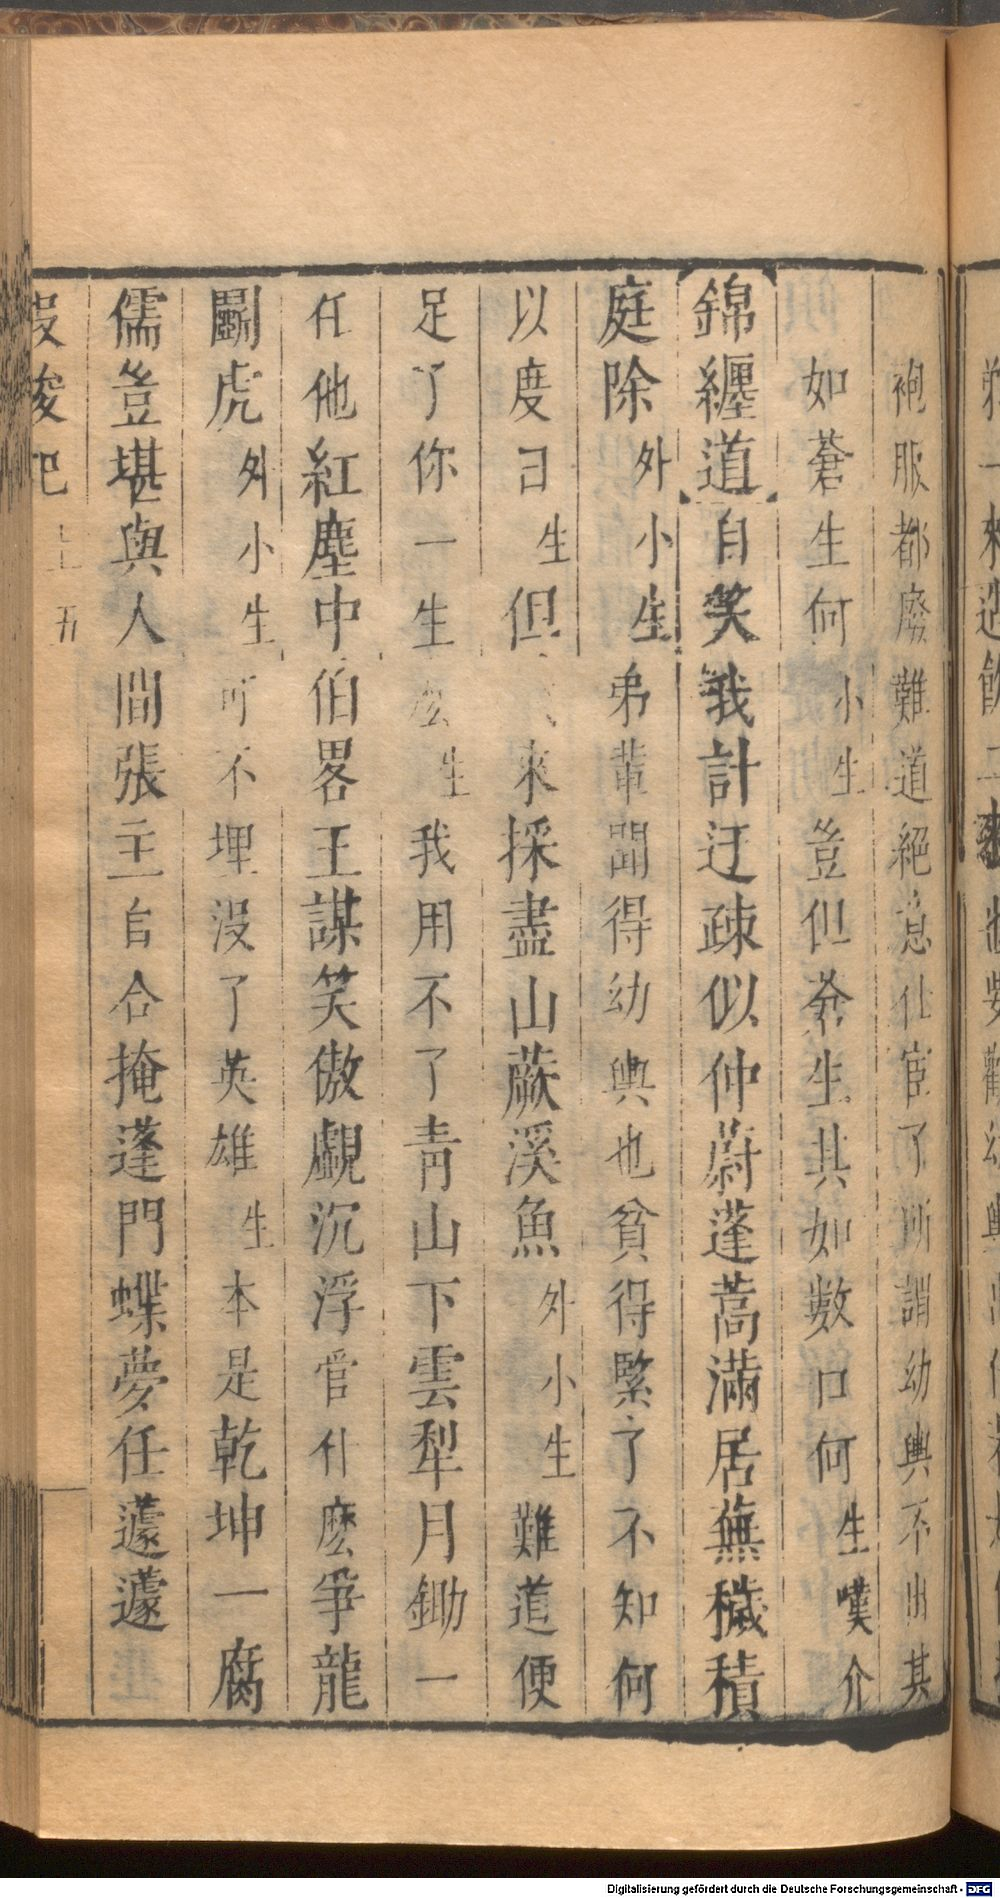 袍服都廢難道絕意仕宦了所謂幼輿不出其
如蒼生何小生豈但蒼生其如數口何生嘆介
錦纏道自笑我計迂疎似仲蔚蓬蒿滿居蕪穢積
庭除外小生弟輩聞得幼輿也貧得緊了不知何
以度日生但來採盡山蕨溪魚外小生難道便
足了你一生麽生我用不了青山下雲犁月鋤一
任他紅塵中伯畧王謀笑傲覷沉浮管什麽爭龍
鬬虎外小生可不埋沒了英雄生本是乾坤一腐
儒豈堪與人間張主自合掩蓬門蝶夢任蘧蘧
上 五
Digitalisierung gefördert durch die Deutsche Forschungsgemeinschaft - DFG